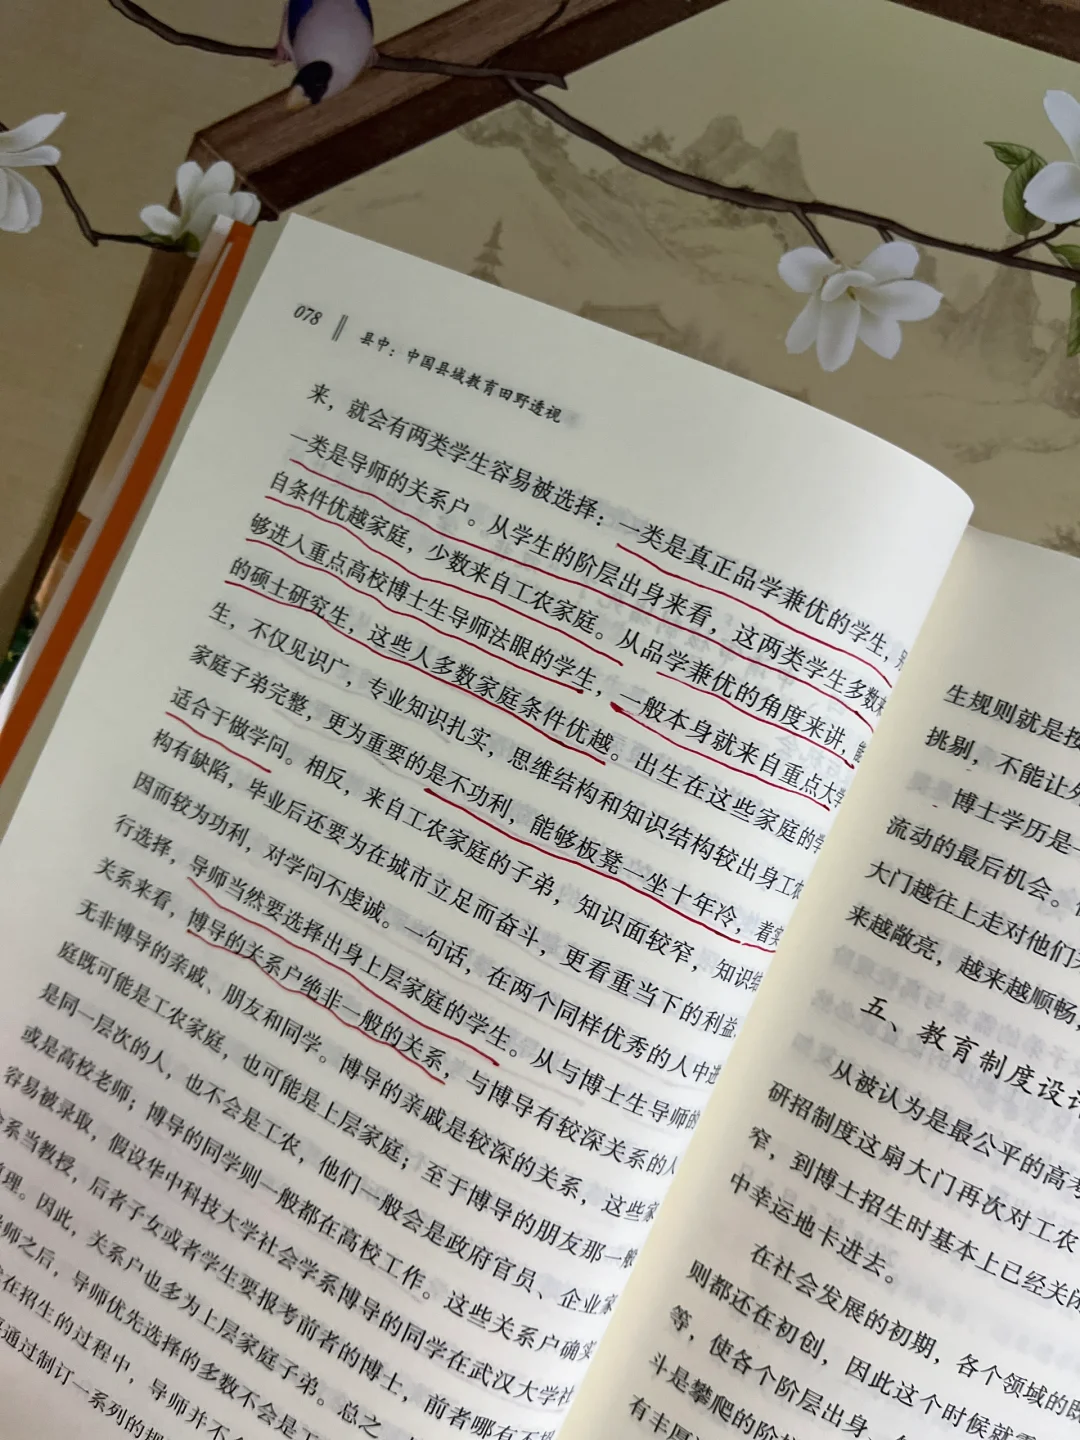 078
县中：中国县域教育田野透视
来，就会有两类学生容易被选择：一类是真正品学兼优的学生，
一类是导师的关系户。从学生的阶层出身来看，这两类学生多数
自条件优越家庭，少数来自工农家庭。从品学兼优的角度来讲，
够进入重点高校博士生导师法眼的学生，一般本身就来自重点大学
的硕士研究生，这些人多数家庭条件优越。出生在这些家庭的学
生，不仅见识广，专业知识扎实，思维结构和知识结构较出身工农
家庭子弟完整，更为重要的是不功利，能够板凳一坐十年冷，着实
适合于做学问。相反，来自工农家庭的子弟，知识面较窄，知识结
构有缺陷，毕业后还要为在城市立足而奋斗，更看重当下的利益，
因而较为功利，对学问不虔诚。一句话，在两个同样优秀的人中进
行选择，导师当然要选择出身上层家庭的学生。从与博士生导师的
关系来看，博导的关系户绝非一般的关系，与博导有较深关系的人
无非博导的亲戚、朋友和同学。博导的亲戚是较深的关系，这些家
庭既可能是工农家庭，也可能是上层家庭；至于博导的朋友那一般
是同一层次的人，也不会是工农，他们一般会是政府官员、企业家
或是高校老师；博导的同学则一般都在高校工作。这些关系户确实
容易被录取，假设华中科技大学社会学系博导的同学在武汉大学社
系当教授，后者子女或者学生要报考前者的博士，前者哪有不
理。因此，关系户也多为上层家庭子弟。总之，
导师之后，导师优先选择的多数不会是工
在招生的过程中，导师并不
通过制订一系列的
生规则就是按
挑剔，不能让外
博士学历是一
流动的最后机会。
大门越往上走对他们
来越敞亮，越来越顺畅，
五、教育制度设计
从被认为是最公平的高考
研招制度这扇大门再次对工农
窄，到博士招生时基本上已经关闭
中幸运地卡进去。
在社会发展的初期，各个领域的
则都还在初创，因此这个时候就
等，使各个阶层出身
斗是攀爬的阶
有丰厚